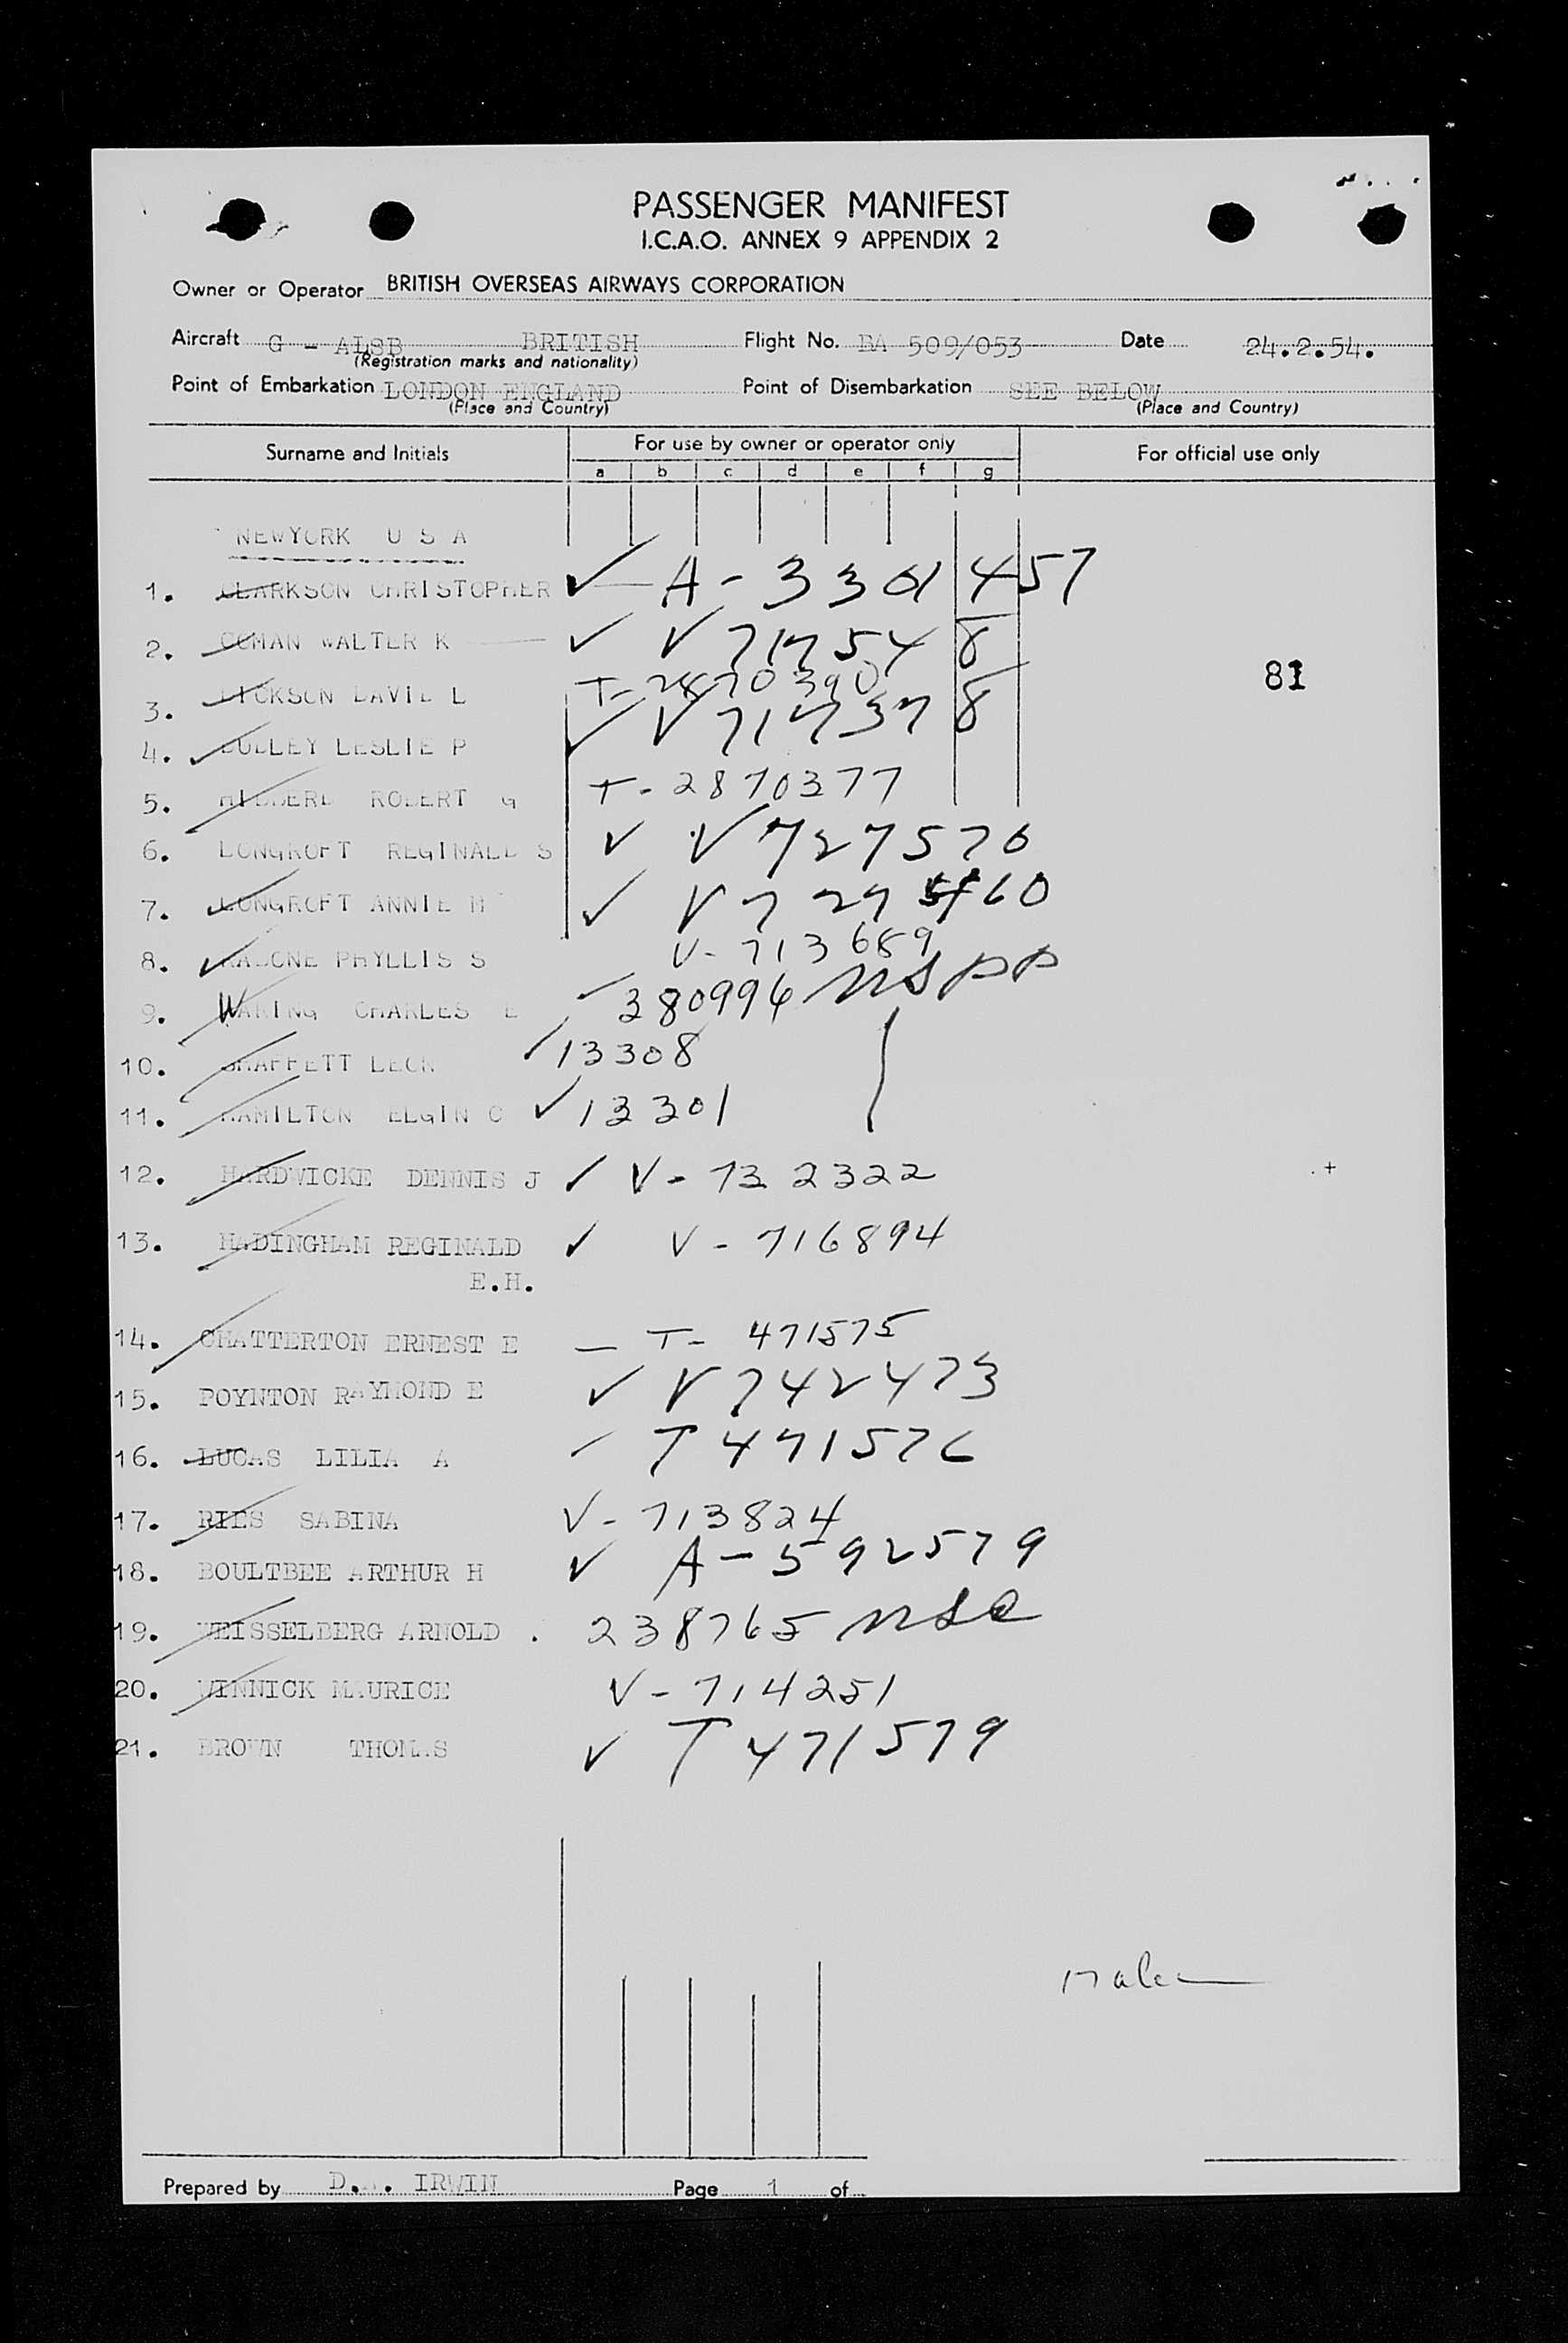 PASSENGER MANIFEST
I.C.A.O. ANNEX 9 APPENDIX 2
Owner or Operator BRITISH OVERSEAS AIRWAYS CORPORATION
Aircraft G - ALSB BRITISH Flight No. BA 509/053 Date 24.2.54.
(Registration marks and nationality)
Point of Embarkation LONDON ENGLAND Point of Disembarkation SEE BELOW
(Place and Country) (Place and Country)
Surname and Initials For use by owner or operator only For official use only
a b c d e f g
NEWYORK U S A
1. CLARKSON CHRISTOPHER ✓ A - 3301457
2. COMAN WALTER K ✓ V 717548
81
3. DICKSON DAVID L T-2870390
4. DOLLEY LESLIE P ✓ V 717378
5. HIBBERD ROBERT G T-2870377
6. LONGROFT REGINALD S ✓ V 727576
7. LONGROFT ANNIE M ✓ V 727 60
8. PHYLLIS S V-713689
9. WARING CHARLES E 380996 NSPP
10. LEON ✓ 13308
11. HAMILTON ELGIN C ✓ 13301
12. HARDWICKE DENNIS J ✓ V-732322
13. HADINGHAM REGINALD ✓ V-716894
E.H.
14. CHATTERTON ERNEST E — T- 471575
15. POYNTON RAYMOND E ✓ V742473
16. LUCAS LILIA A T 471576
17. RIES SABINA V-713824
18. BOULTBEE ARTHUR H ✓ A-592579
19. WEISSELBERG ARNOLD . 238765
20. WINNICK MAURICE V-714251
21. BROWN THOMAS ✓ T 471579
Prepared by D. . IRWIN Page 1 of